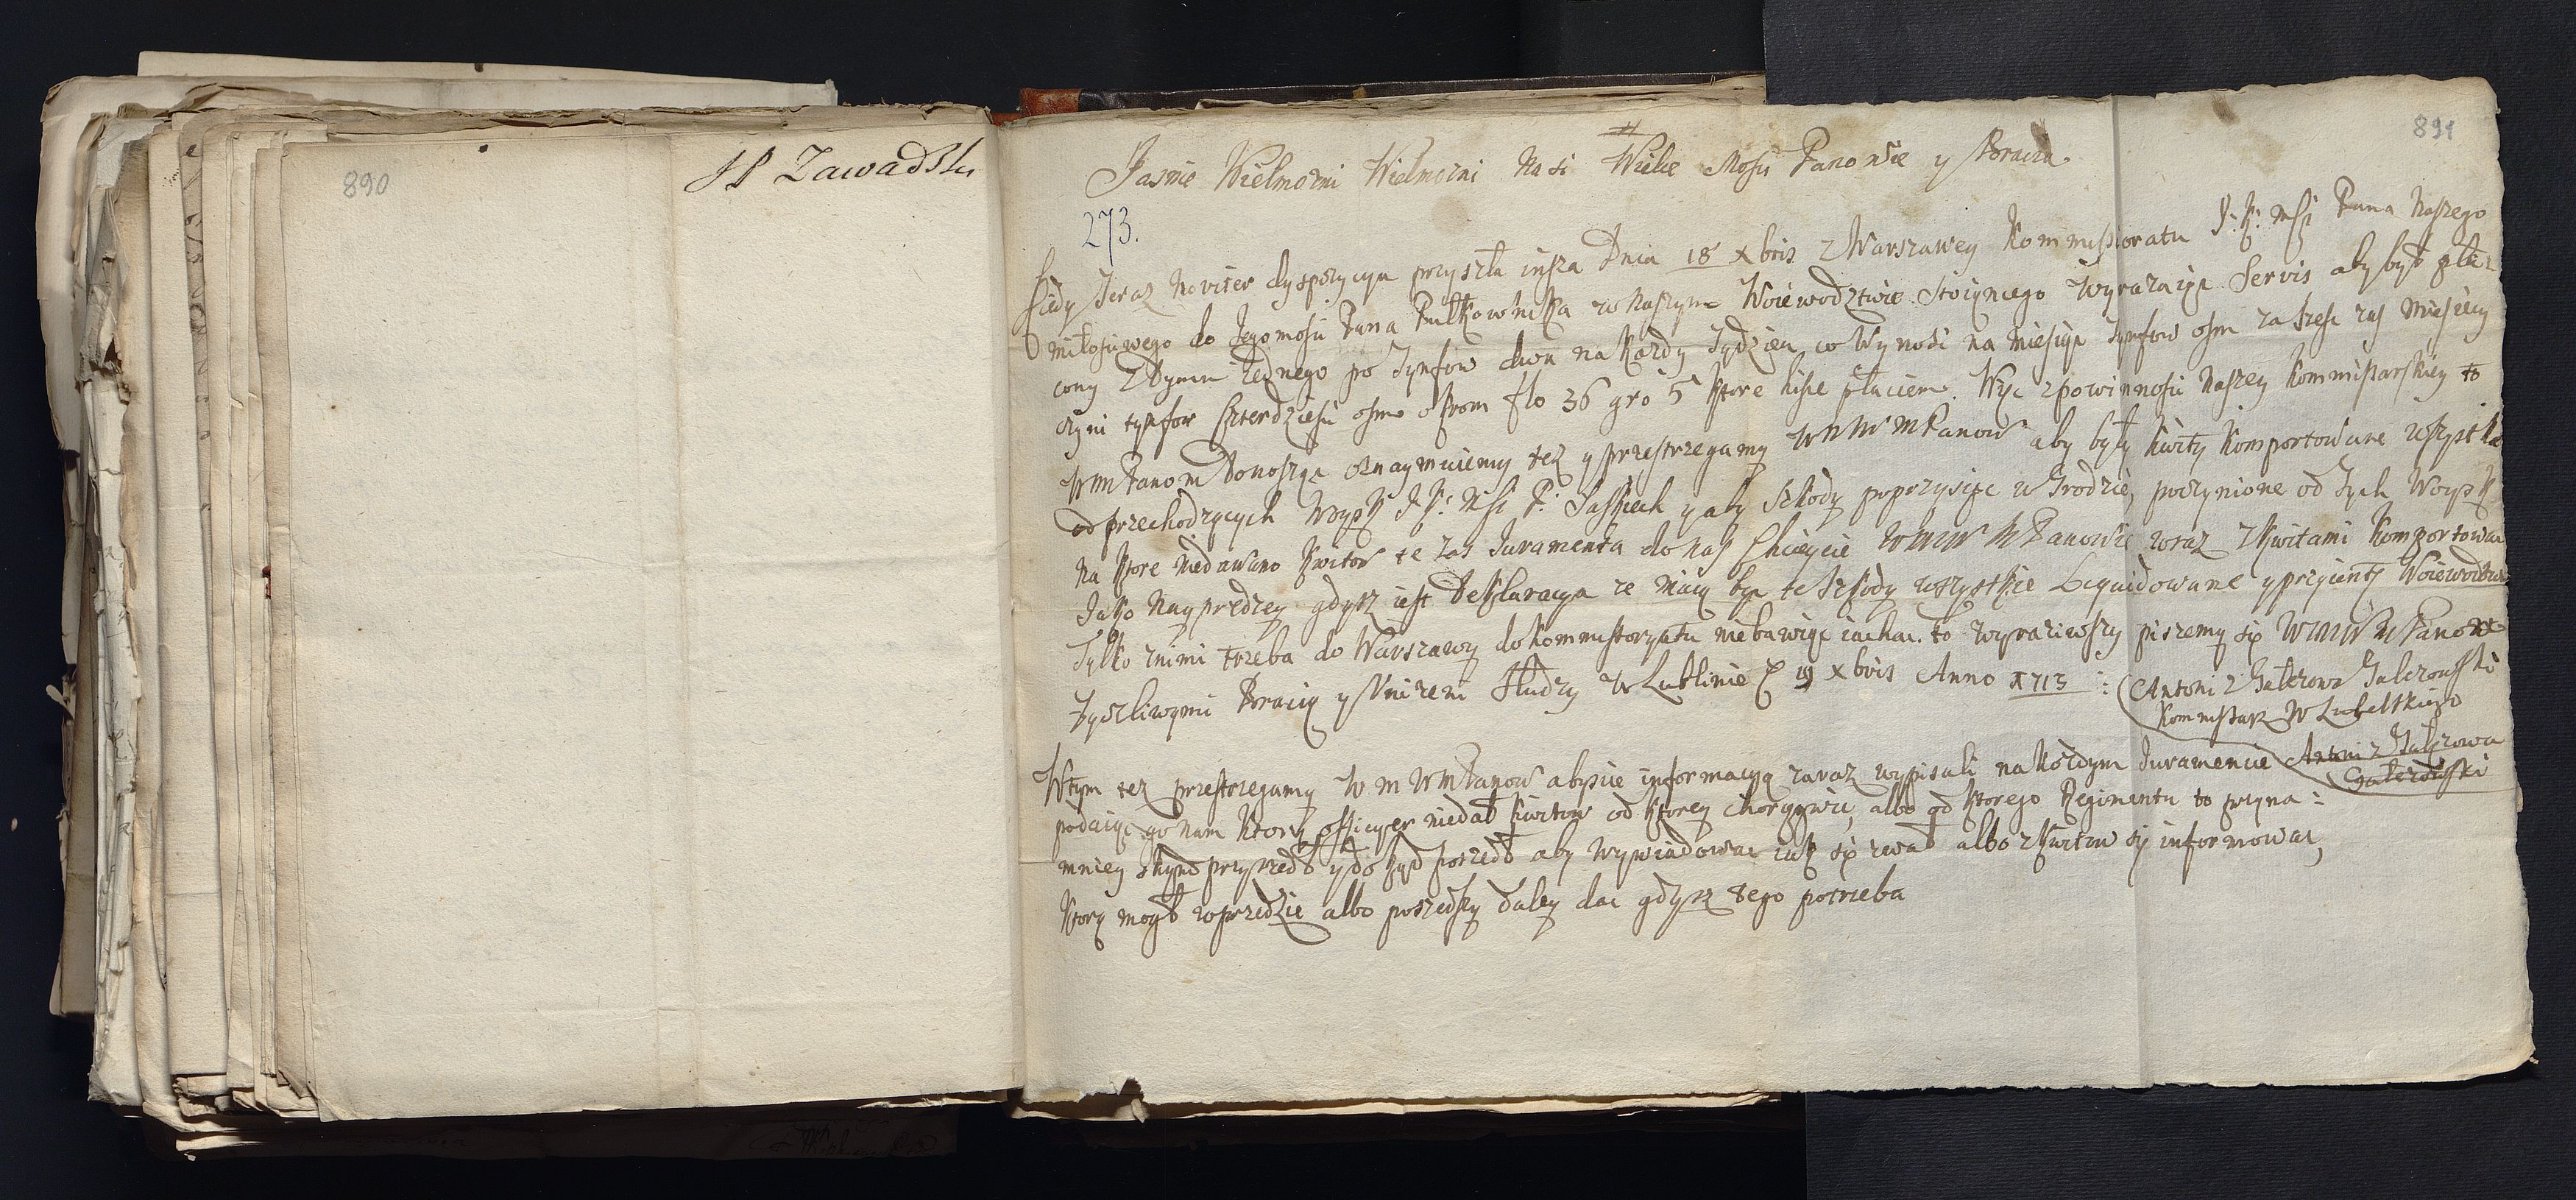 890
JP Zawadzki
891
Jasnie Wielmozni Wielmozni Nasi Wielce Mosci Panowie y Bracia.
273.
Kiedy Teraz Noviter dyspozycya przyszła insza Dnia 18 Xbris z Warszawey Kommissoratu J: K: Msci Pana Naszego
miłosciwego do Jegomosci Pana Pułkownika w Naszym Woiewodztwie Stoiącego wyrazaiąc Servis aby był płac
cony z Dymu Jednego po Tynfow dwa na kazdy Tydzien co Wynosi na miesiąc Tynfow osm za szesc zas Miesięcy
czyni tynfow Czterdziesci osm okrom flo 36 gro 5 ktore hise płaciem. Więc z powinnosci Naszey Kommissarskiey to
WmPanom Donosząc oznaymuiemy tez y przestrzegamy WM WMPanow aby były kwity Komportowane wszystkie
od przechodzących Woysk J K: Msci P: Saskiech y aby Szkody poprzysiąc w Grodzie, poczynione od Tych Woysk
Na ktore niedawano Kwitow te zas Juramenta do nas Chcieycie WMW MPanowie wraz z Kwitami Komportowac
Jako Nayprędzey gdysz iest Deklaracya ze maią byc te Szkody wszystkie Liquidowane y przyięte Woiewodztwu
Tylko z nimi trzeba do Warszawy do Kommissoryatu nie bawiąc iachac. to wyraziwszy piszemy się WMW MPanow
Zyczliwymi Bracią y Unizeni Słudzy w Lublinie D 19 Xbris Anno 1713 :
Antoni z Galezowa Galezowski
Kommissarz W Lubelskiego
Antoni z Galezowa
Galezowski
Wtym tez przestrzegamy W M WMPanow abyscie informacyą zaraz wypisali na kozdym Juramencie
podaiąc go nam ktory officyer niedał kwitow od ktorey chorągwie, albo od ktorego Regimentu to przyna:
mniey skąd przyszedł y dokąd poszedł aby wywiadowac iak się zwał albo z kwitow się informowac,
ktory mogł w przedzie albo poszedszy daley dac gdysz tego potrzeba